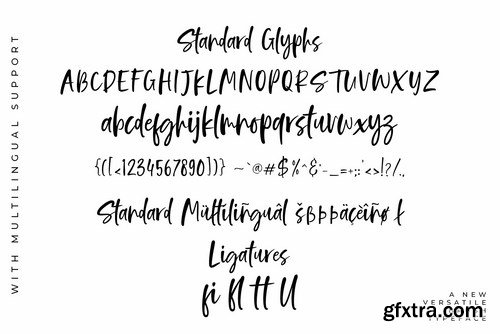 WITH MULTILINGUAL SUPPORT
Standard Glyphs
ABCDEFGHIJKLMNOPQRSTUVWXYZ
abcdefghijklmnopqrstuvwxyz
{([<1234567890])} ~`@#$%^&*-_=+;:'<>!?/.,
Standard Multilingual šβþÞäçèîñø ł
Ligatures
fi fl tt ll
A NEW
VERSATILE
TYPEFACE
gfxtra.com